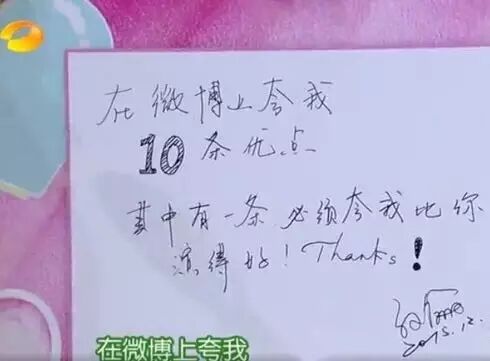 在微博上夸我
10条优点
其中有一条必须夸我比你
演得好！Thanks！
2015.12.
在微博上夸我